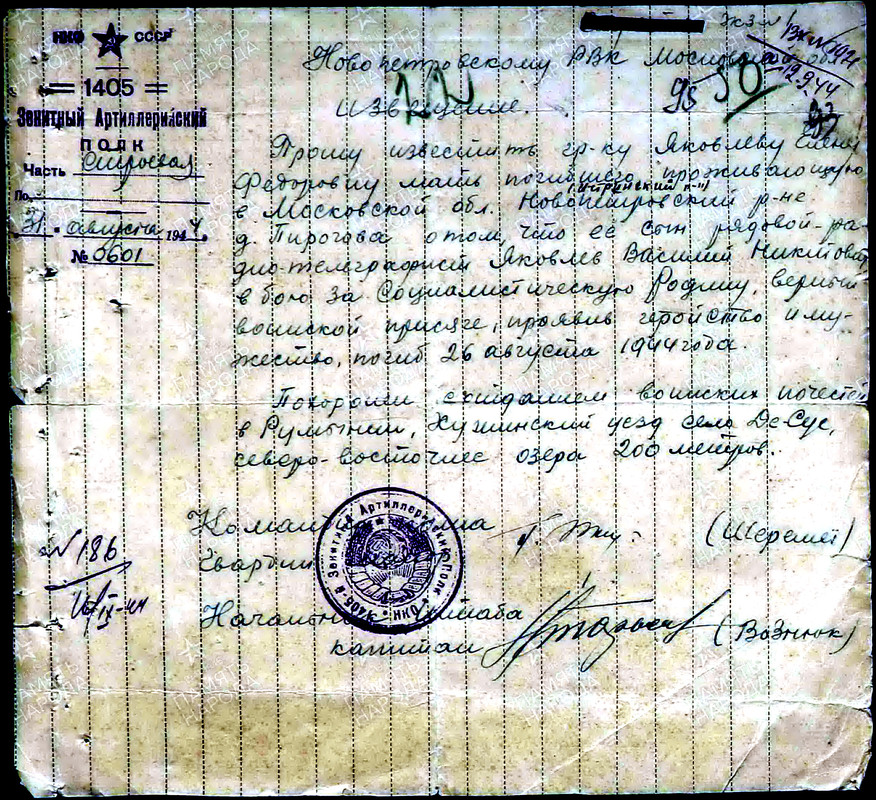 НКО СССР
= 1405 =
Зенитный Артиллерийский
ПОЛК
Часть Строевая
По
31 августа 1944 г.
№ 0601
Экз. №1
Вх №
12.9.44
95 50
Новопетровскому РВК Московской обл.
Извещение.
Прошу известить гр-ку Яковлеву Елену
Федоровну мать погибшего, проживающую
(Истринский р-н)
в Московской обл. Новопетровский р-не
д. Пирогава о том, что её сын рядовой-ра-
дио-телеграфист Яковлев Василий Никитович
в бою за Социалистическую Родину, верный
воинской присяге, проявив геройство и му-
жество, погиб 26 августа 1944 года.
Похоронен с отданием воинских почестей
в Румынии, Хушинский уезд село Де-Сус,
северо-восточнее озера 200 метров.
Командир полка
Гвардии
(Шеремет)
Начальник Штаба
капитан
(Вознюк)
1405-й Зенитный Артиллерийский Полк НКО
№ 186
16/IX-44
ПАМЯТЬ НАРОДА